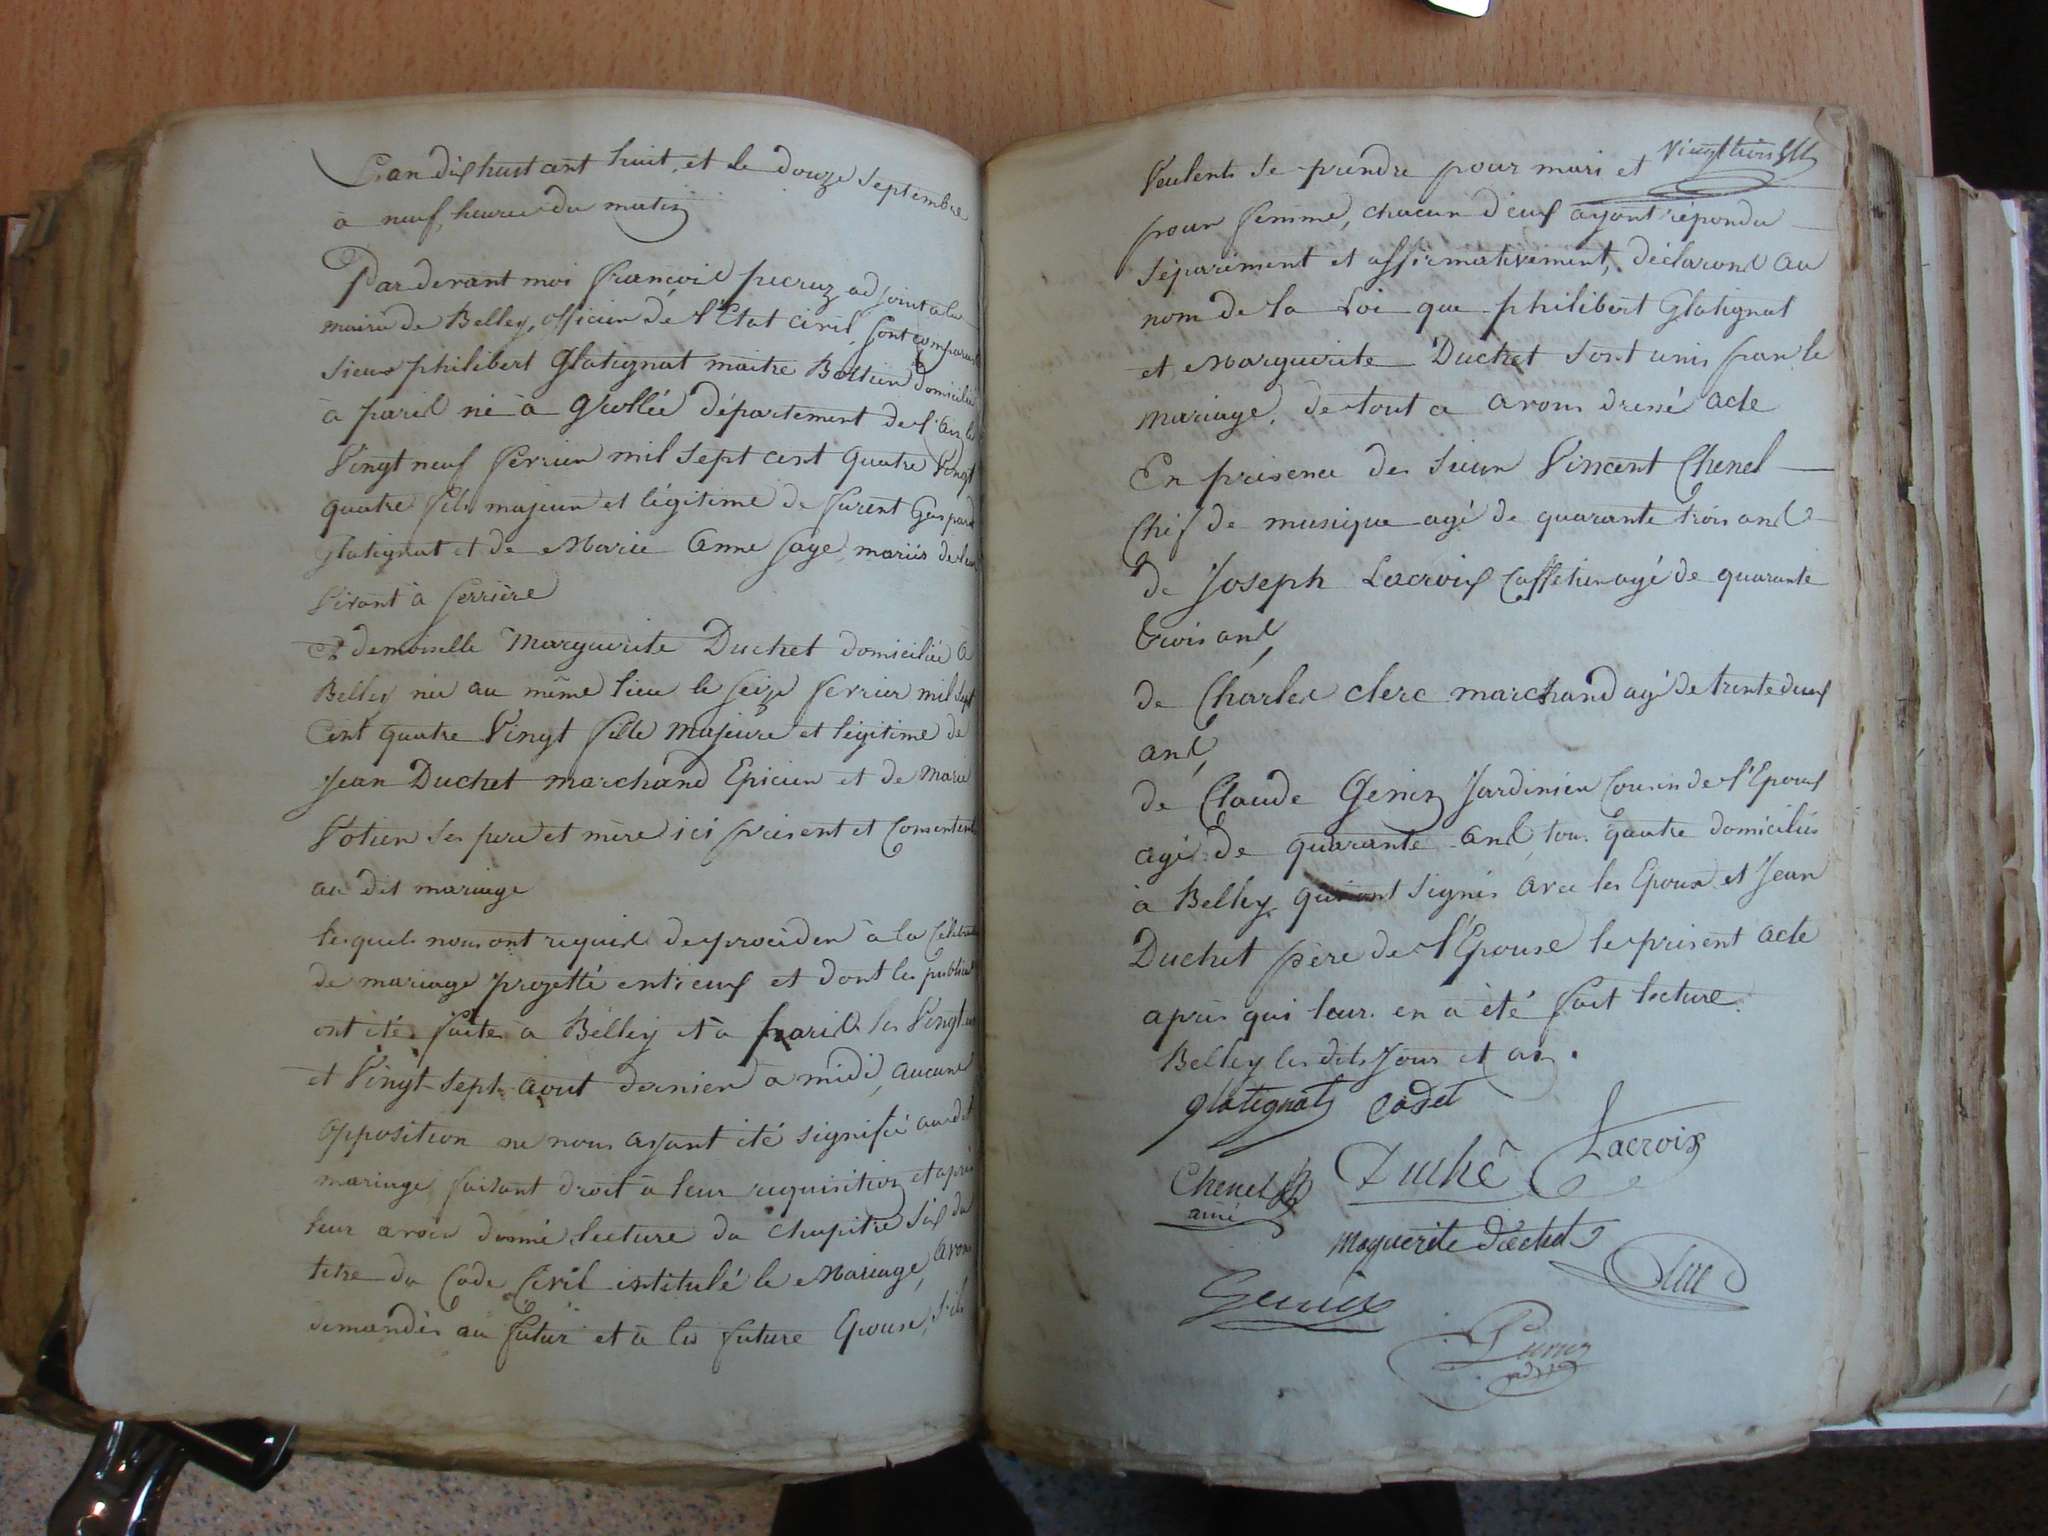 L'an dix huit cent huit, et le douze septembre
à neuf heures du matin
Par devant moi françois pecruz adjoint a la
mairie de Belley, officier de l'Etat civil, sont comparus
sieur philibert Glatignat maitre Bottier domicilié
à paris né à Grollée département de l'ain le
Vingt neuf fevrier mil sept cent quatre Vingt
quatre fils majeur et légitime de furent Gaspard
Glatignat et de Marie Anne Saye mariés de leur
Vivant à perrière
Et demoiselle Marguerite Duchet domiciliée à
Belley née au même lieu le seize fevrier mil sept
Cent quatre Vingt fille majeure et légitime de
Jean Duchet marchand Epicier et de Marie
Votier ses pere et mère ici present et consentent
au dit mariage
lesquels nous ont requis de proceder à la Celebration
de mariage projetté entr'eux et dont les publica
ont été faites à Belley et à paris les Vingt un
et Vingt-sept aout dernier à midi, aucune
opposition ne nous ayant été signifiée au dit
mariage faisant droit à leur requisition et après
leur avoir donné lecture du chapitre six du
titre du Code Civil intitulé le Mariage, avons
demandés au futur et à la future Epouse, s'ils
Vingt trois
Veulent se prendre pour mari et
pour femme, chacun d'eux ayant répondu
séparément et affirmativement, déclarons au
nom de la Loi que philibert Glatignat
et Marguerite Duchet sont unis par le
mariage, de tout a avons dressé acte
En présence des sieurs Vincent Chenel
Chef de musique agé de quarante trois ans
de Joseph Lacroix Caffetier agé de quarante
trois ans,
de Charles clerc marchand agé de trente deux
ans,
de Claude Genin Jardinier Cousin de l'Epoux
agé de quarante ans, tous quatre domiciliés
à Belley qui ont signés avec les Epoux et Jean
Duchet père de l'Epouse le présent acte
après qui leur en a été fait lecture.
Belley les dits Jour et an.
glatignat cadet
Lacroix
Chenel Duchê
ainé
Marguerite duchet
Clerc
Genin
Pecruz
adjt